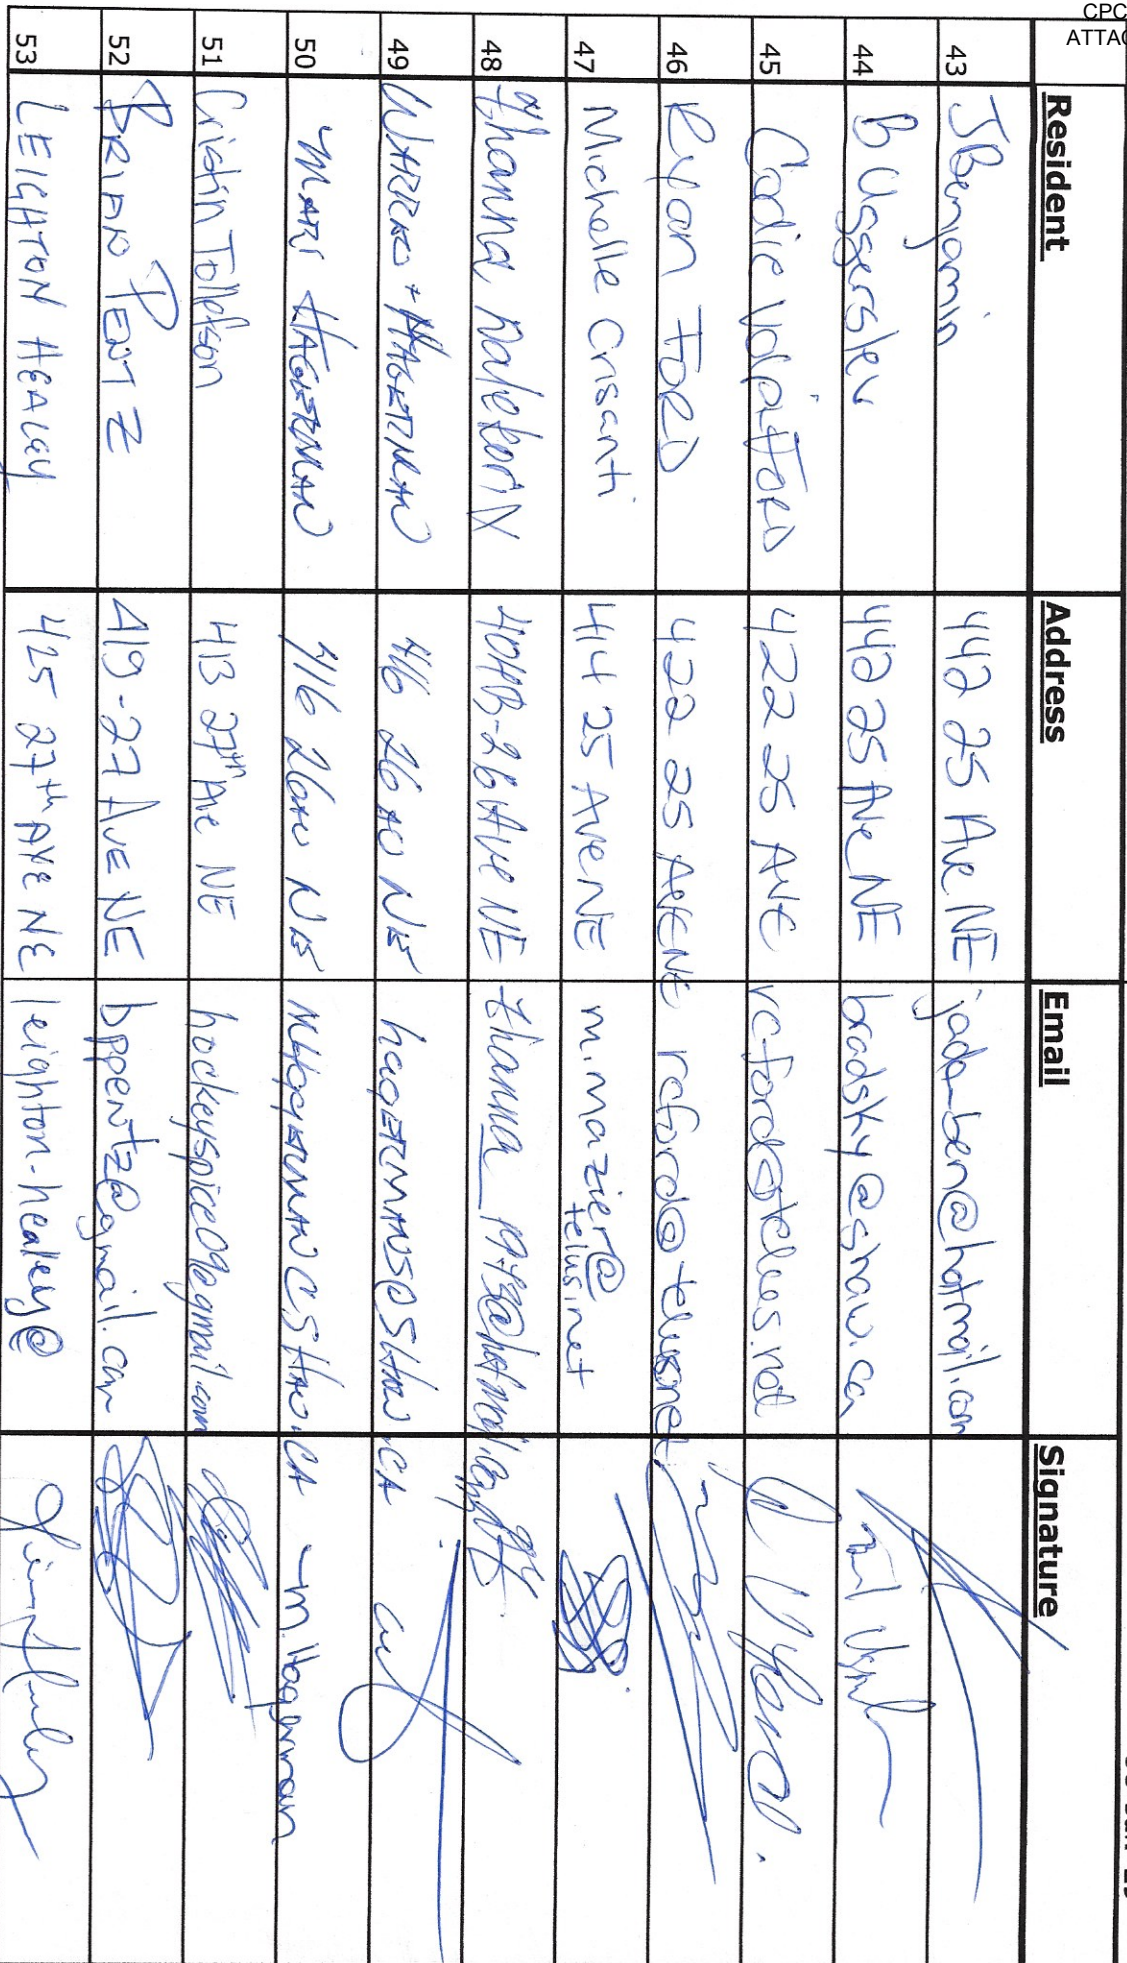 CPC
ATTAC
Resident Address Email Signature
43 J Benjamin 442 25 Ave NE jada_ben@hotmail.com
44 B Usserslev 442 25 Ave NE bradsky@shaw.ca
45 Codie Volpi Ford 422 25 AVE rcford@telus.net
46 Ryan FORD 422 25 AVENE rcford@telus.net
47 Michelle Crisanti 414 25 AVENE m.mazier@telus.net
48 Zhanna 404B-26 Ave NE Zhanna_1973@hotmail.com
49 HAGERMAN 416 26 NE hagermans@shaw.ca
50 MARI HAGERMAN 416 26 NE MHAGERMAN@SHAW.CA M. Hagerman
51 Cristin Tollefson 413 27th Ave NE hockeyspice09@gmail.com
52 BRIAN PENTZ 419-27 AVE NE bppentz@gmail.com
53 LEIGHTON HEALEY 425 27th AVE NE leighton.healey@